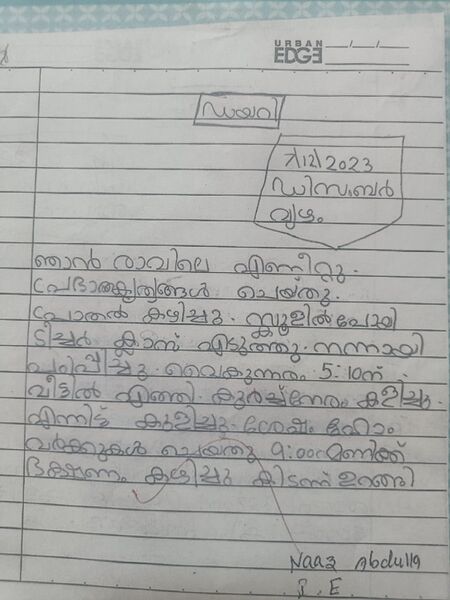 URBAN
EDGE
ഡയറി
7/12/2023
ഡിസംബർ
വ്യഴം
ഞാൻ രാവിലെ എണീറ്റു.
പ്രഭാതകൃത്യങ്ങൾ ചെയ്തു.
പ്രാതൽ കഴിച്ചു. സ്കൂളിൽപോയി
ടീച്ചർ ക്ലാസ് എടുത്തു. നന്നായി
പഠിപ്പിച്ചു. വൈകുന്നരം 5:10ന്
വീട്ടിൽ എത്തി. കുറച്ച്നേരം കളിച്ചു.
എന്നിട്ട് കുളിച്ചു. ശേഷം ഹോം
വർക്കുകൾ ചെയ്തു 9:00മണിക്ക്
ഭക്ഷണം കഴിച്ചു കിടന്ന് ഉറങ്ങി
Naaz Abdulla
E